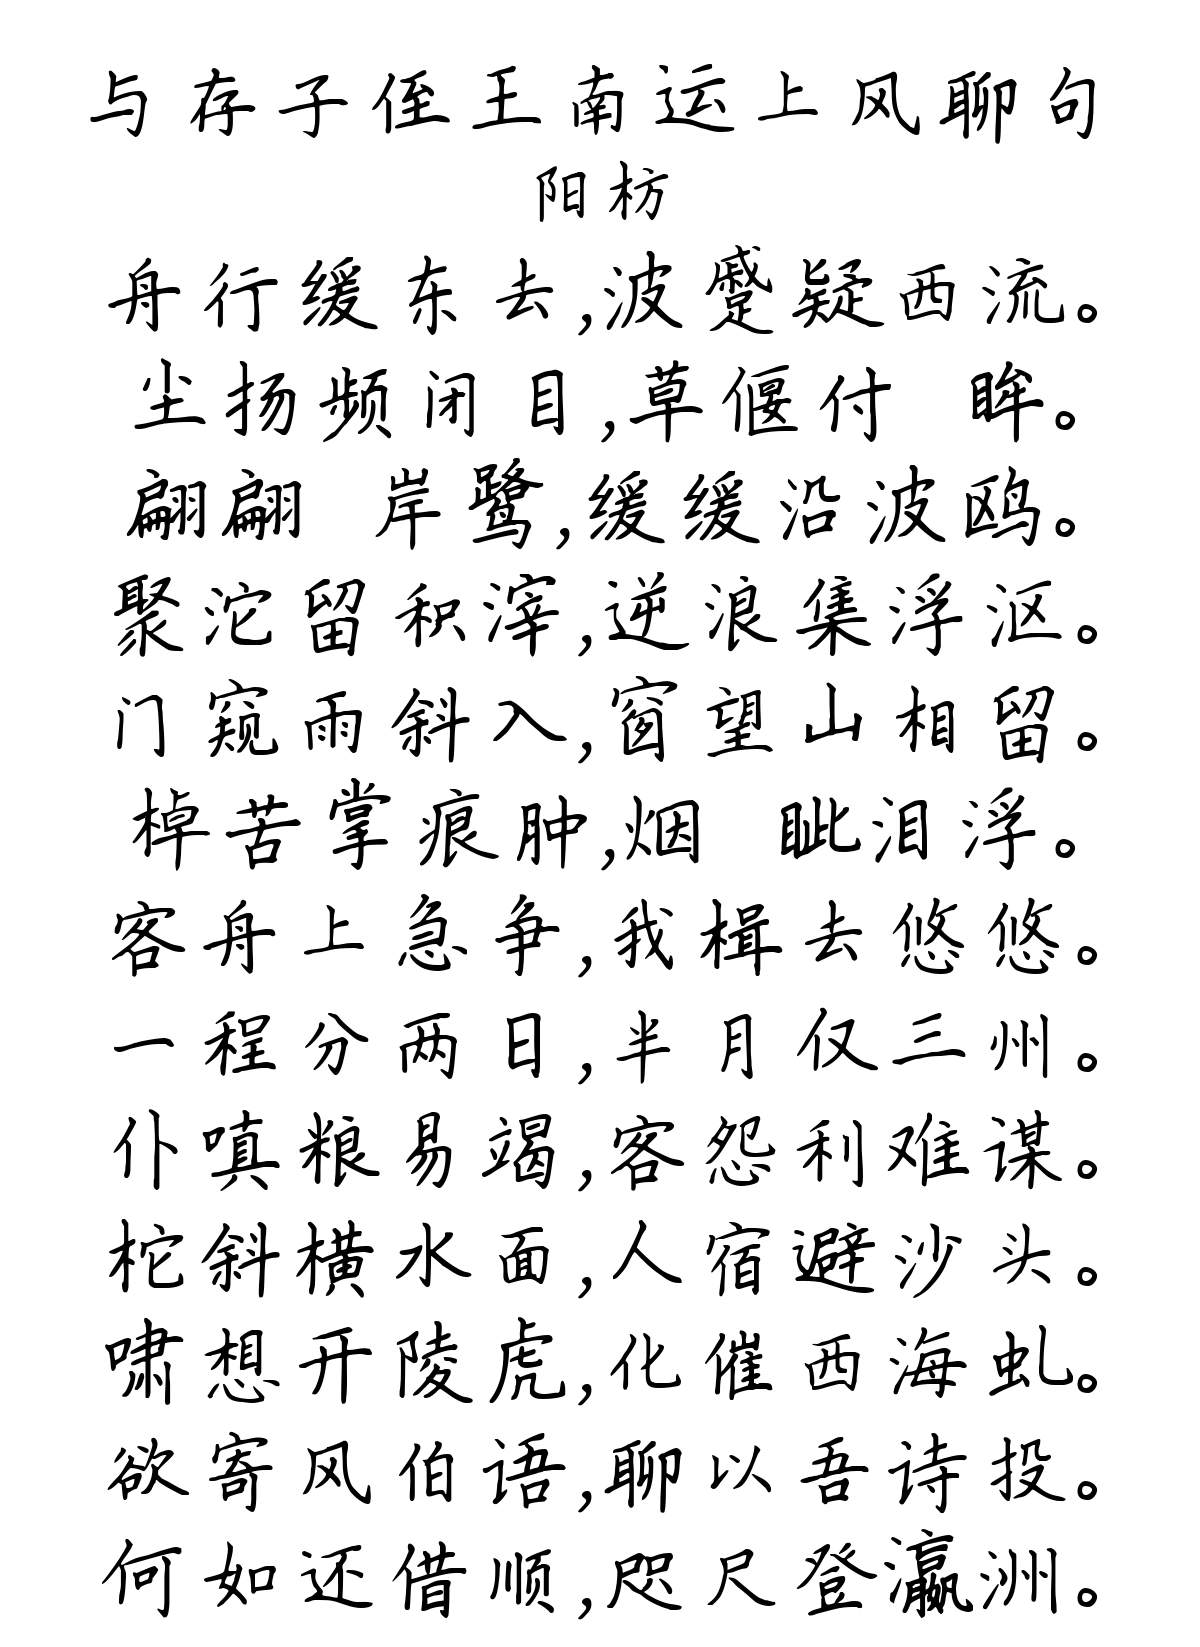 与存子侄王南运上风聊句
阳枋
舟行缓东去,波蹙疑西流。
尘扬频闭目,草偃付眸。
翩翩岸鹭,缓缓沿波鸥。
聚沱留积滓,逆浪集浮沤。
门窥雨斜入,窗望山相留。
棹苦掌痕肿,烟眦泪浮。
客舟上急争,我楫去悠悠。
一程分两日,半月仅三州。
仆嗔粮易竭,客怨利难谋。
柁斜横水面,人宿避沙头。
啸想开陵虎,化催西海虬。
欲寄风伯语,聊以吾诗投。
何如还借顺,咫尺登瀛洲。